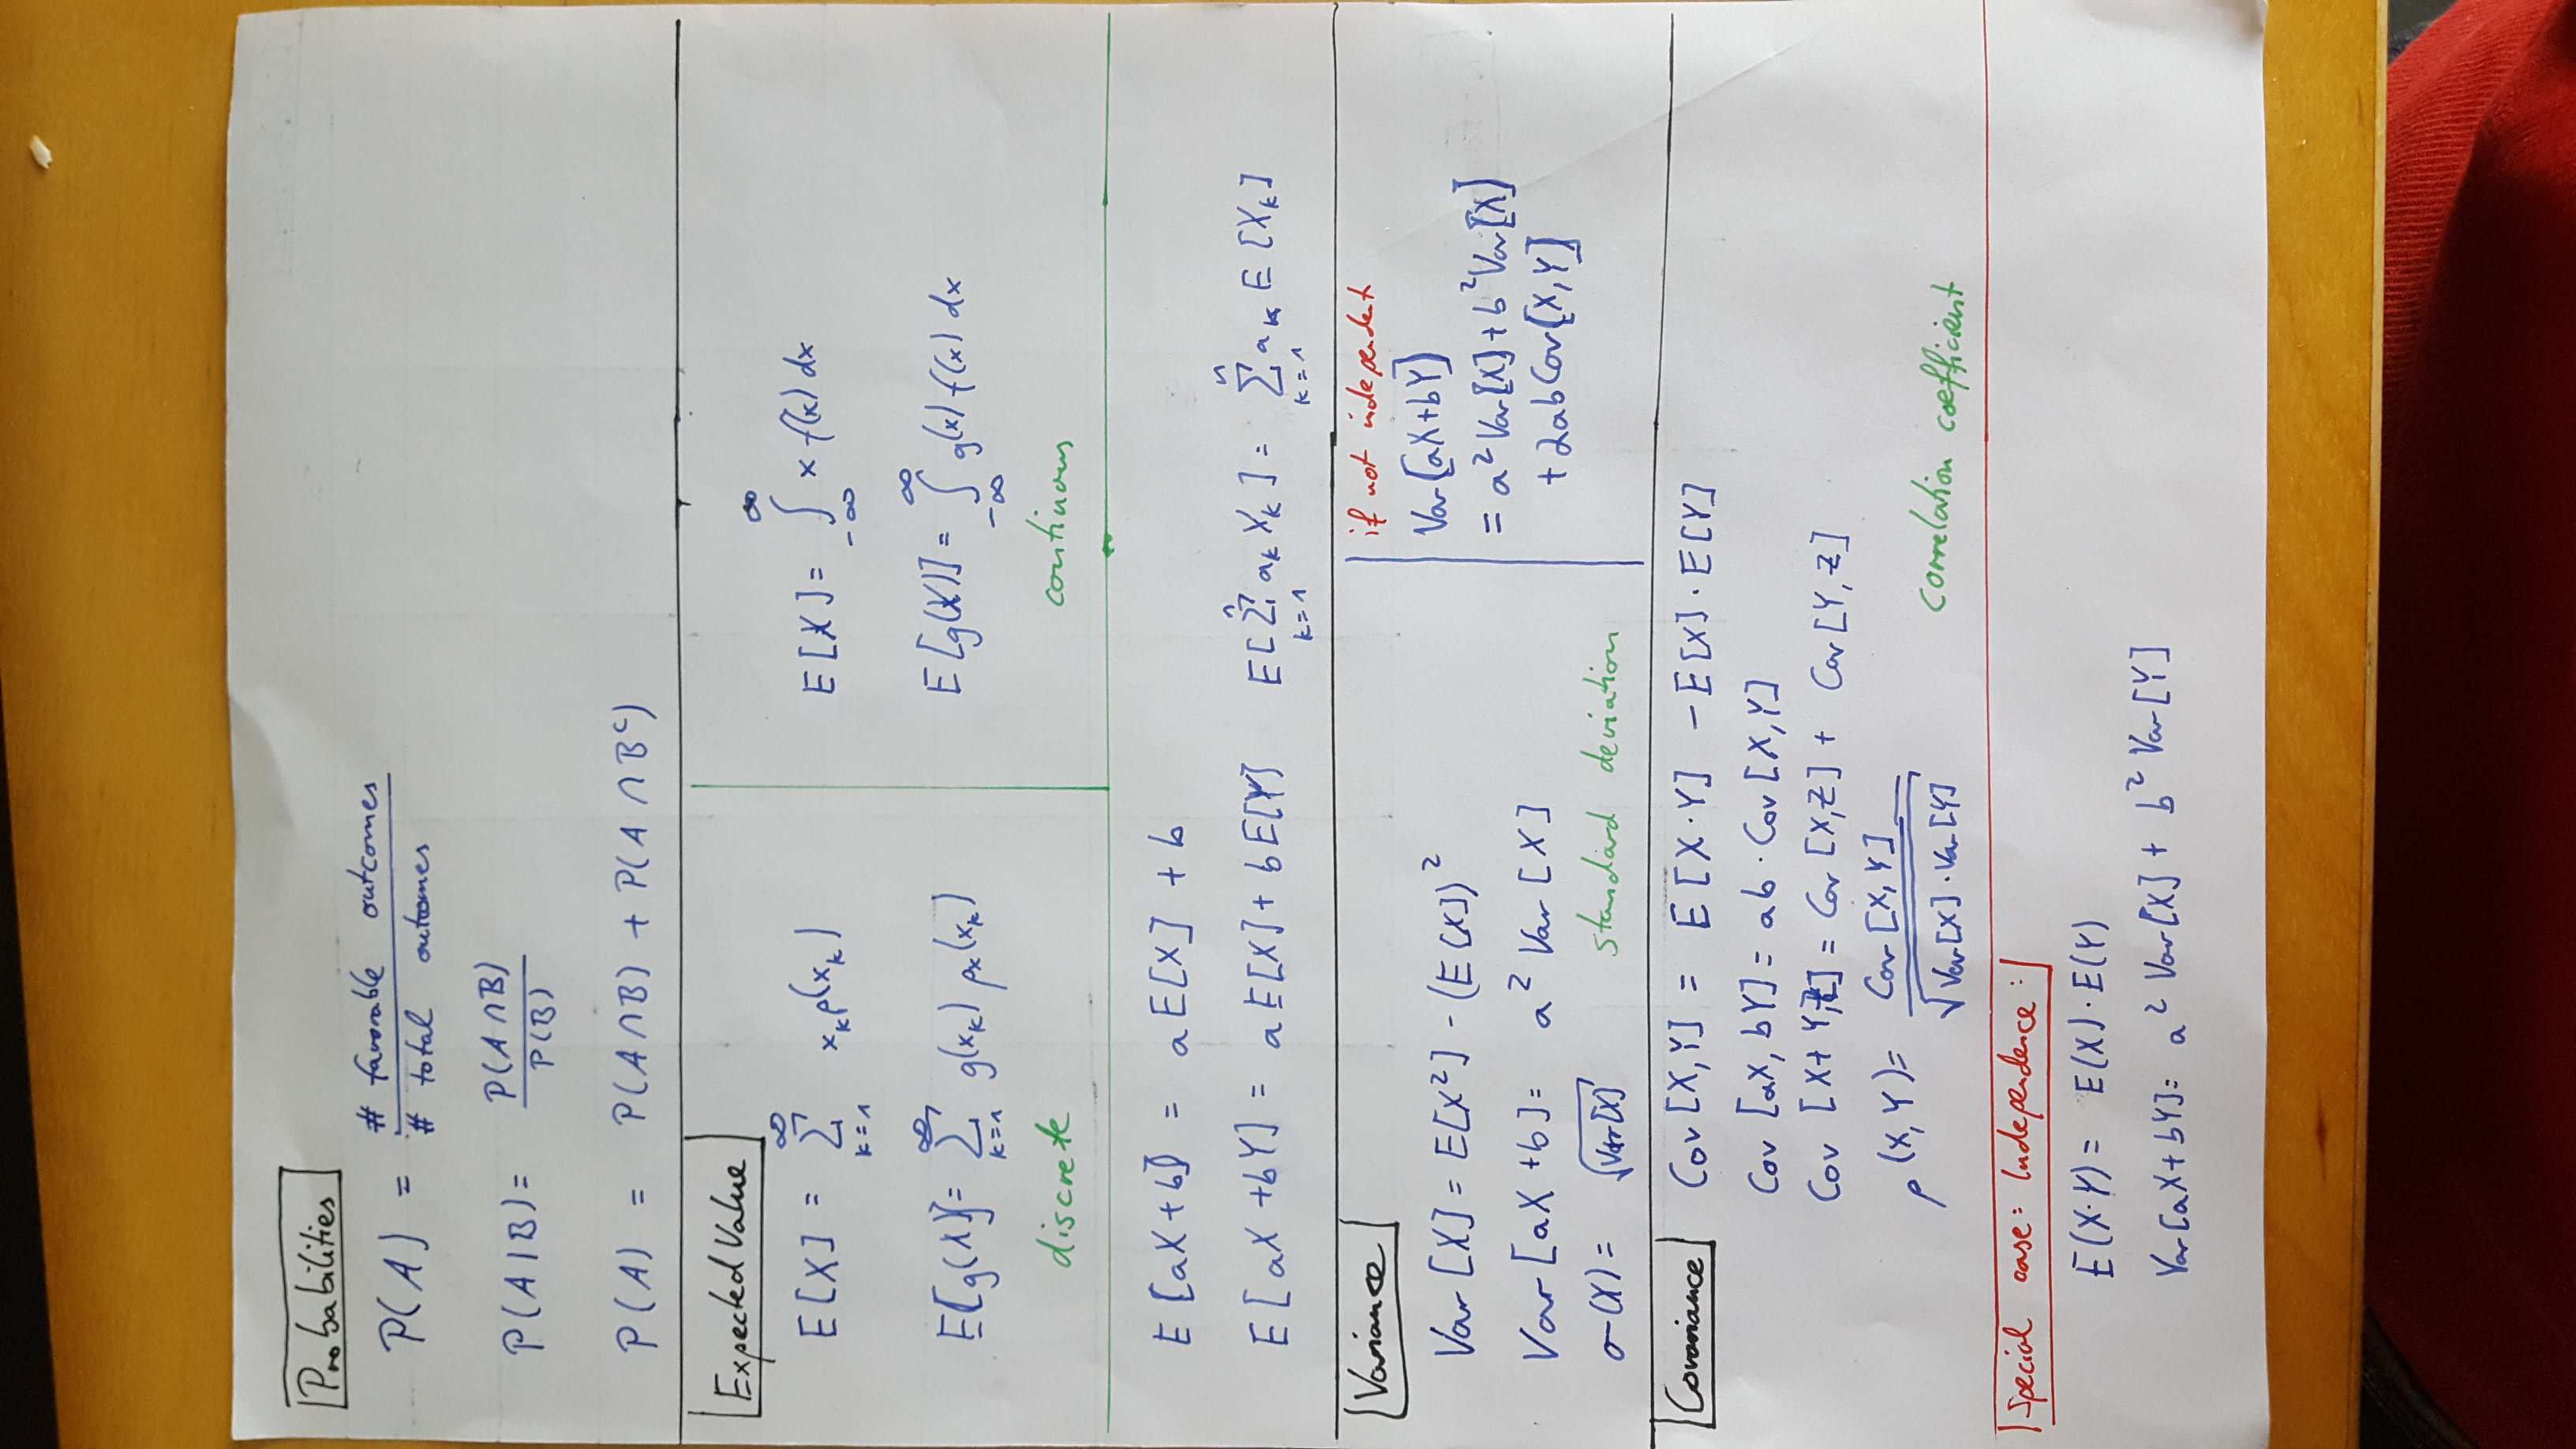 Probabilities
P(A) = # favorable outcomes / # total outcomes
P(A|B) = P(A∩B) / P(B)
P(A) = P(A∩B) + P(A∩Bᶜ)
Expected Value
E[X] = ∞ Σ k=1 xₖp(xₖ)
E[g(X)] = ∞ Σ k=1 g(xₖ) pₓ(xₖ)
discrete
E[X] = ∞ ∫ -∞ x f(x) dx
E[g(X)] = ∞ ∫ -∞ g(x) f(x) dx
continuous
E[aX+b] = aE[X] + b
E[aX+bY] = aE[X] + bE[Y] E[n Σ k=1 aₖXₖ] = n Σ k=1 aₖ E[Xₖ]
Variance
Var[X] = E[X²] - (E[X])²
Var[aX+b] = a² Var[X]
σ(X) = √Var[X] standard deviation
if not independent
Var[aX+bY]
= a² Var[X] + b² Var[X]
+ 2abCov[X,Y]
Covariance Cov[X,Y] = E[X·Y] - E[X]·E[Y]
Cov[aX, bY] = ab · Cov[X,Y]
Cov[X+Y,Z] = Cov[X,Z] + Cov[Y,Z]
ρ(X,Y) = Cov[X,Y] / √Var[X]·Var[Y] correlation coefficient
Special case: Independence:
E(X·Y) = E(X)·E(Y)
Var[aX+bY] = a² Var[X] + b² Var[Y]